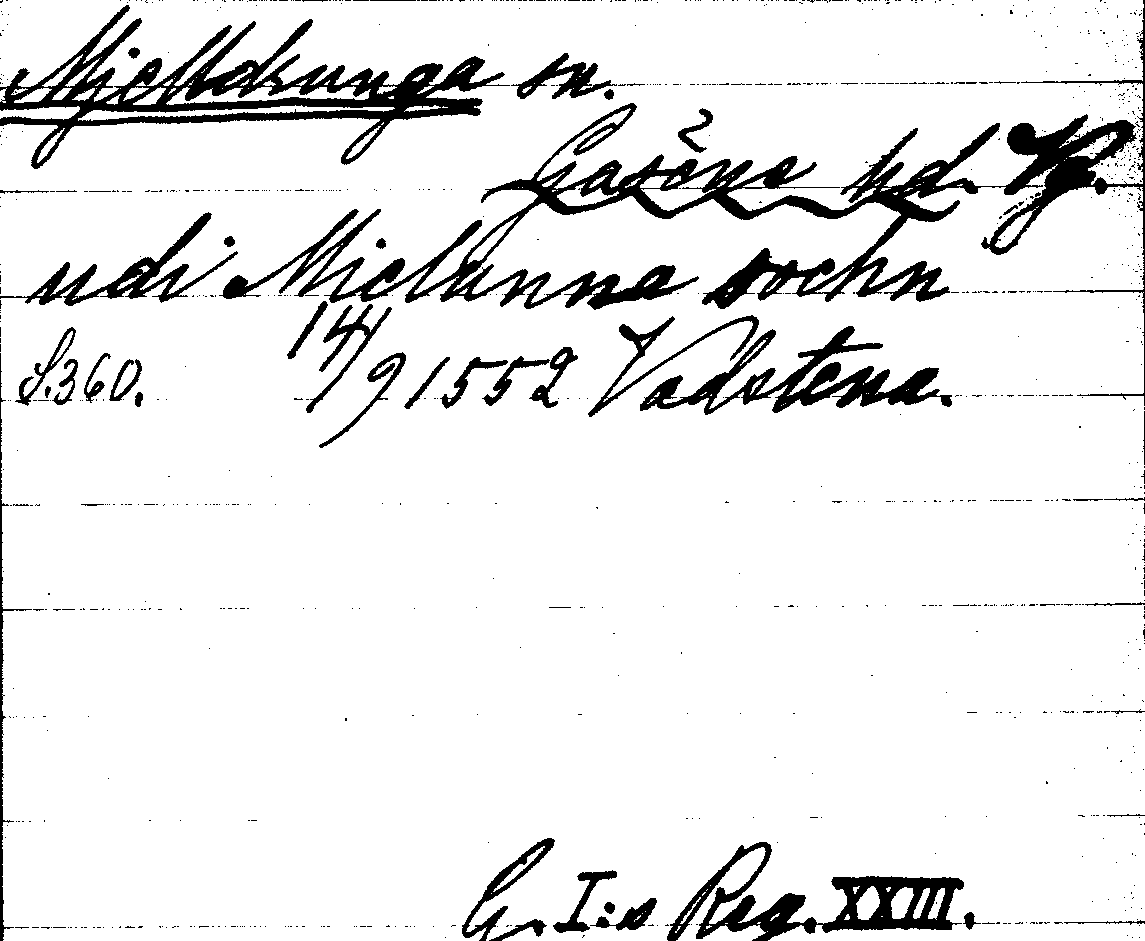 Mjelldrunga sn.
Gäsene hd. Vg.
udi Miclunna sochn
S.360. 14/9 1552 Vadstena.
G. I:s Reg. XXIII.